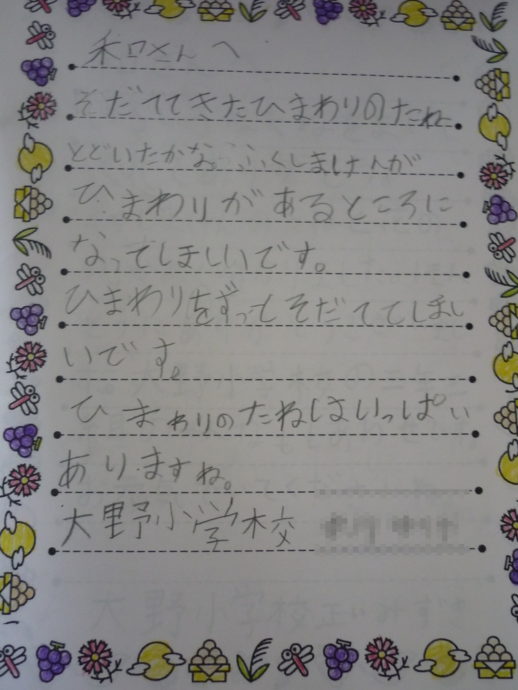 和口さんへ
そだててきたひまわりのたね
とどいたかなふくしまけんが
ひまわりがあるところに
なってほしいです。
ひまわりをずっとそだててほし
いです。
ひまわりのたねはいっぱい
ありますね。
大野小学校